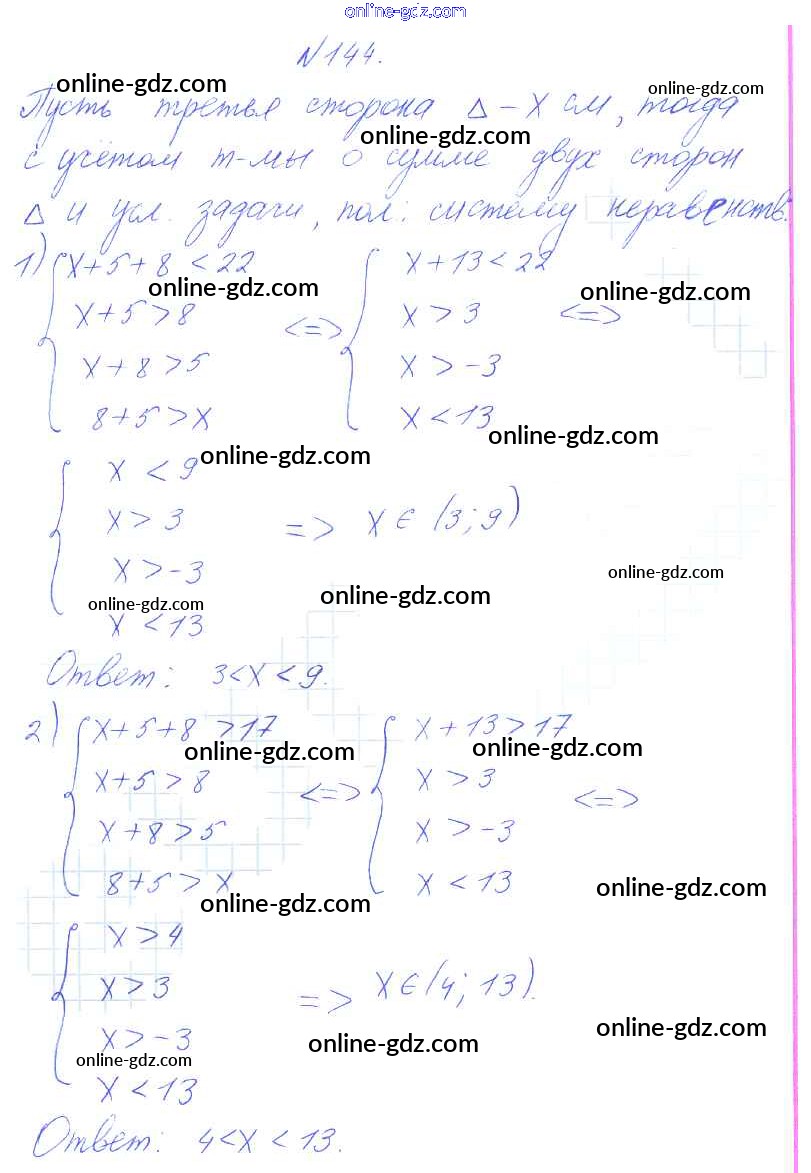 online-gdz.com
N144.
online-gdz.com
online-gdz.com
Пусть третья сторона Δ – x см, тогда
online-gdz.com
с учётом т-мы о сумме двух сторон
Δ и усл. задачи, пол: систему неравенств.
1) { x+5+8<22
x+5>8
x+8>5
8+5>x
<=>
{ x+13<22
x>3
x>-3
x<13
<=>
online-gdz.com
online-gdz.com
online-gdz.com
online-gdz.com
{ x<9
x>3
x>-3
x<13
=> x∈(3;9)
online-gdz.com
online-gdz.com
online-gdz.com
Ответ: 3<x<9.
2) { x+5+8>17
x+5>8
x+8>5
8+5>x
<=>
{ x+13>17
x>3
x>-3
x<13
<=>
online-gdz.com
online-gdz.com
online-gdz.com
online-gdz.com
{ x>4
x>3
x>-3
x<13
=> x∈(4;13).
online-gdz.com
online-gdz.com
online-gdz.com
Ответ: 4<x<13.